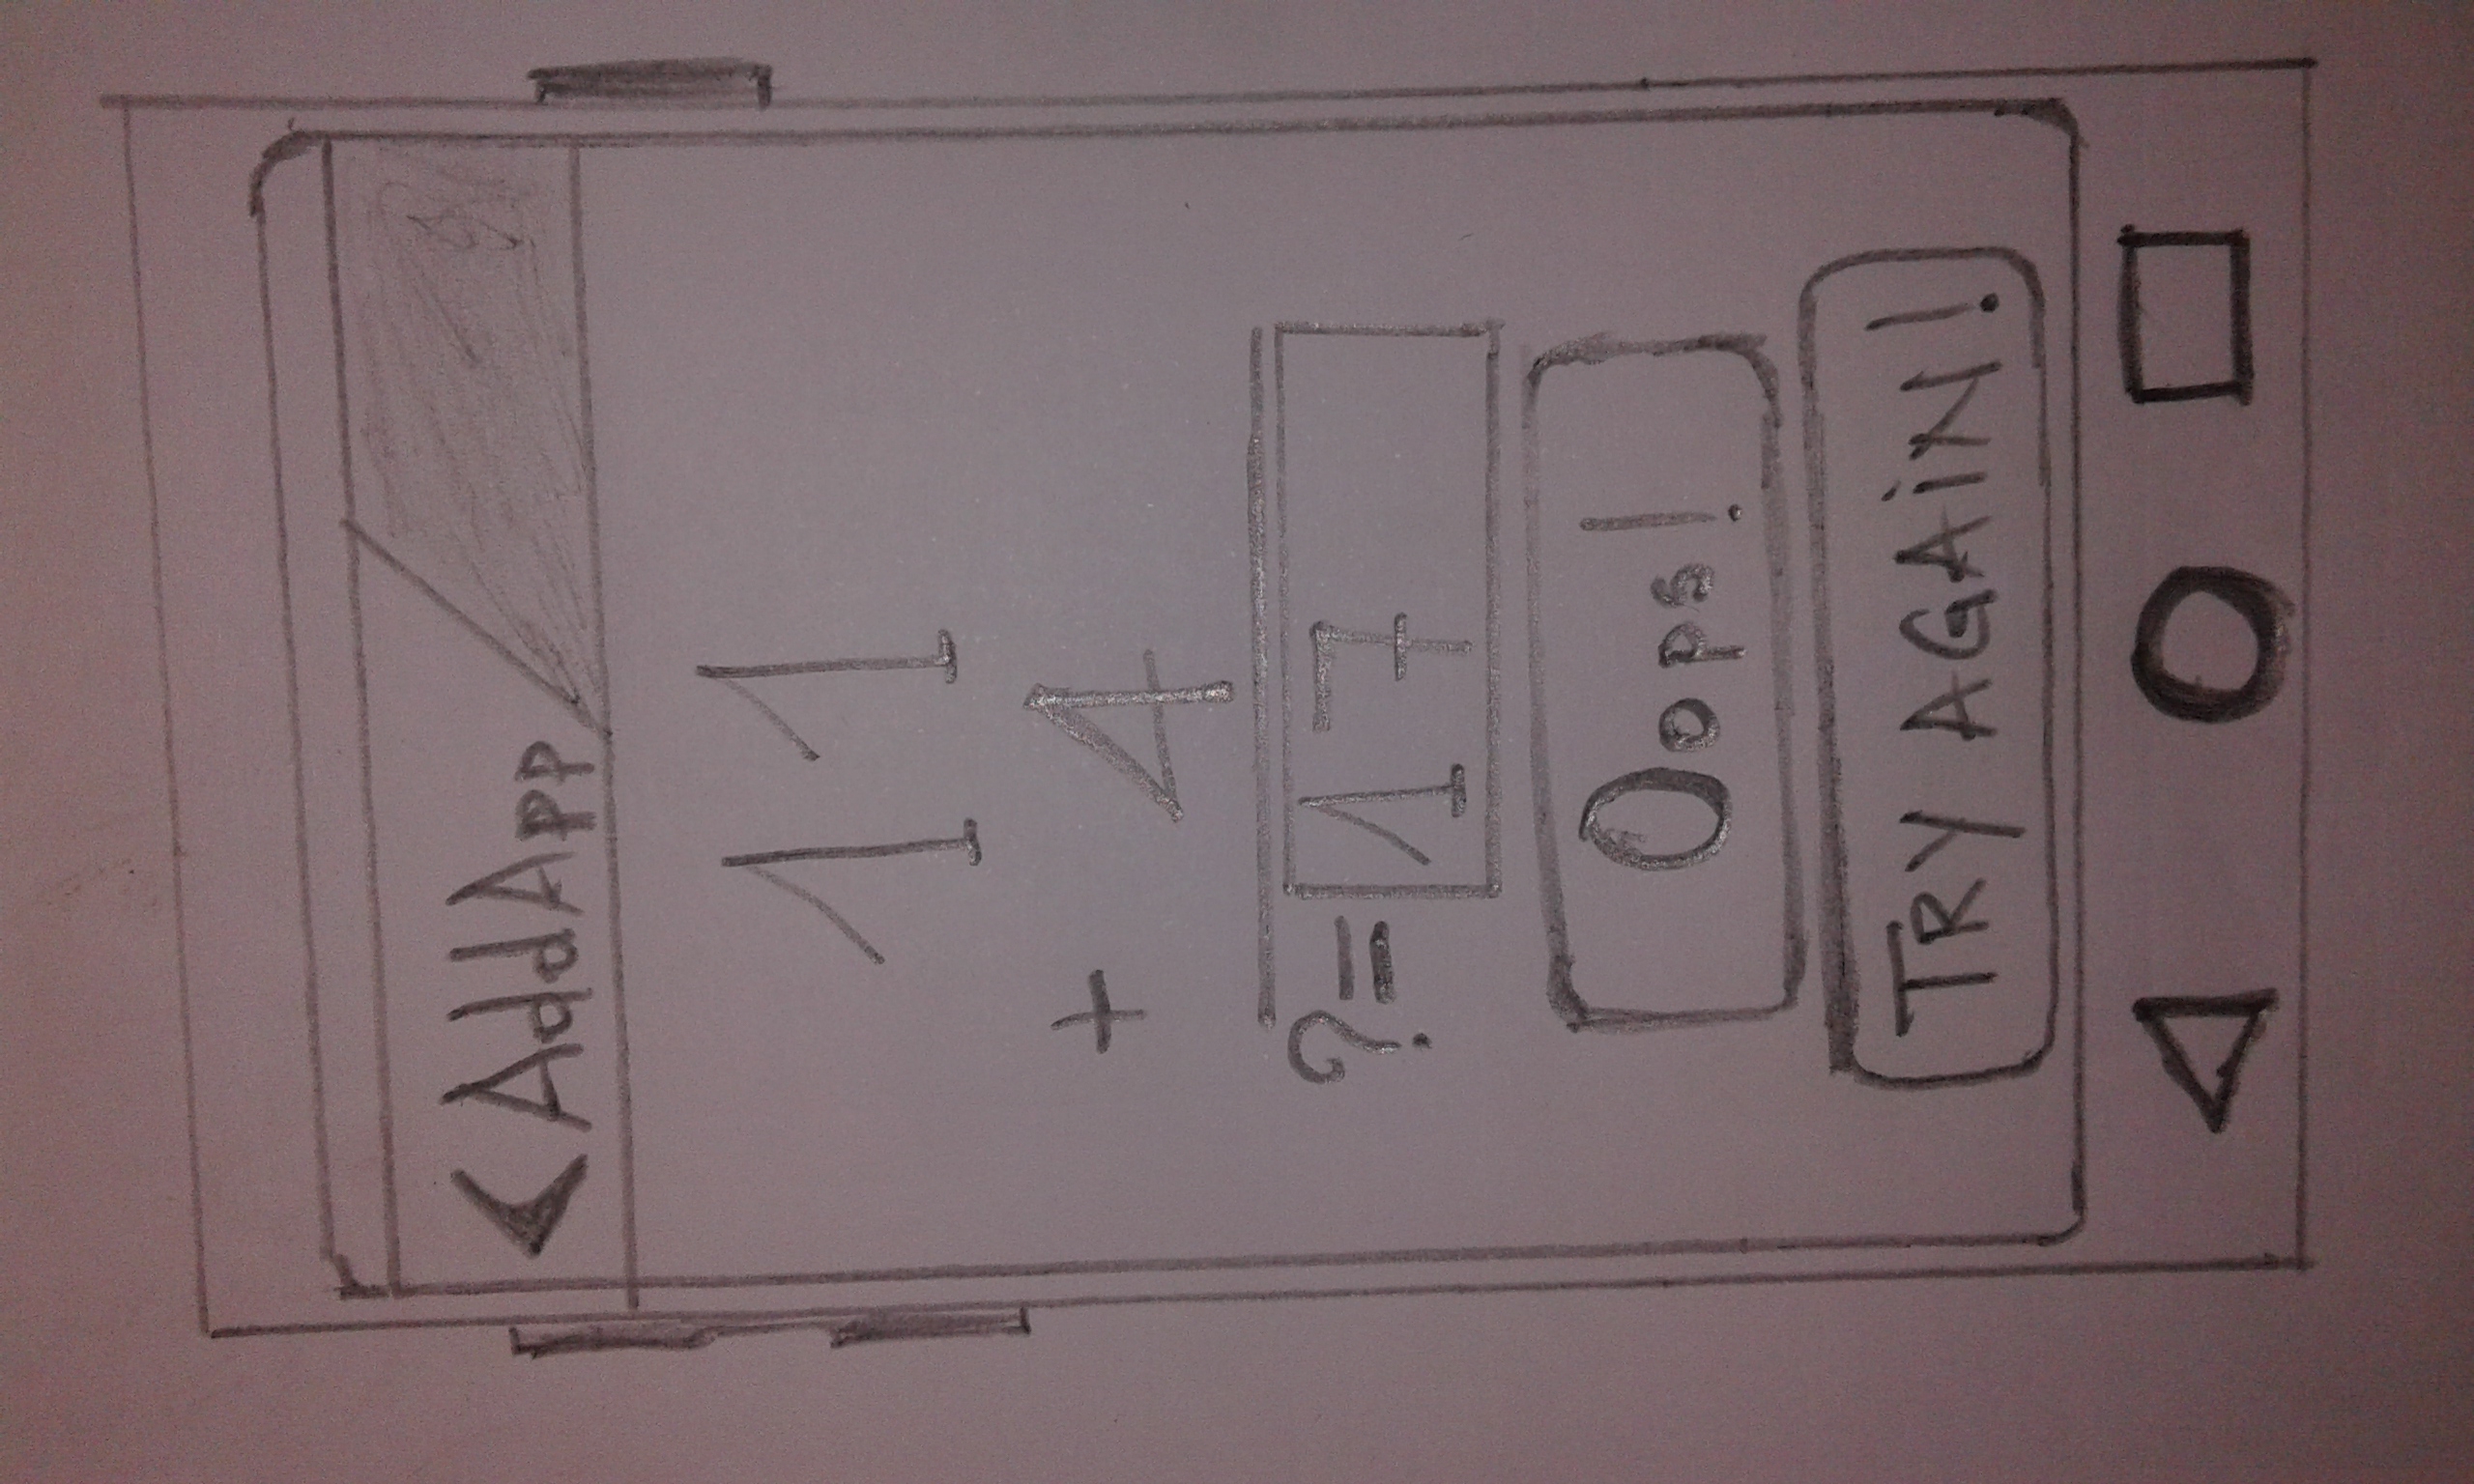 AddApp
11
+ 4
?= 17
Oops!
TRY AGAiN!